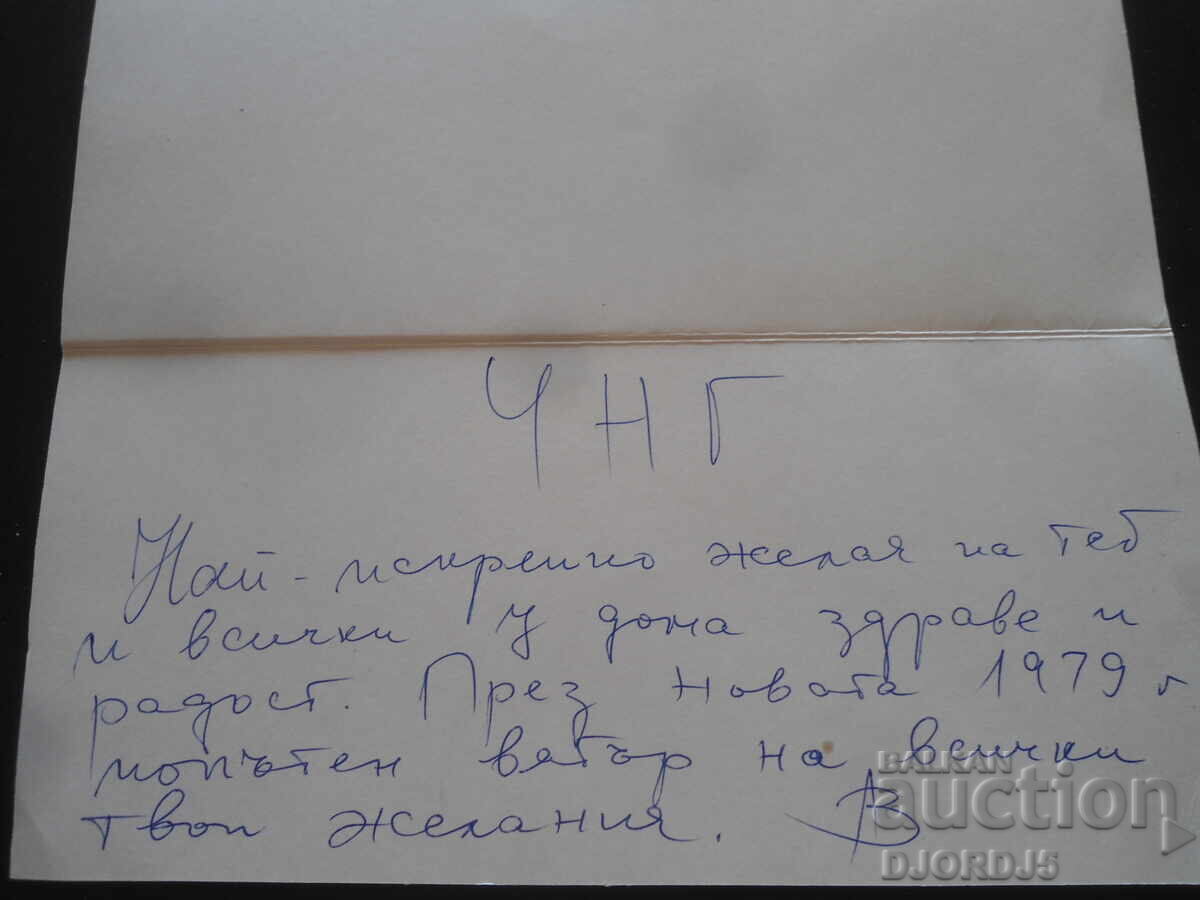 ЧНГ
Най-искренно желая на теб
и всички у дома здраве и
радост. През Новата 1979 г
попътен вятър на всички
твои желания.
BALKAN
auction
DJORDJ5